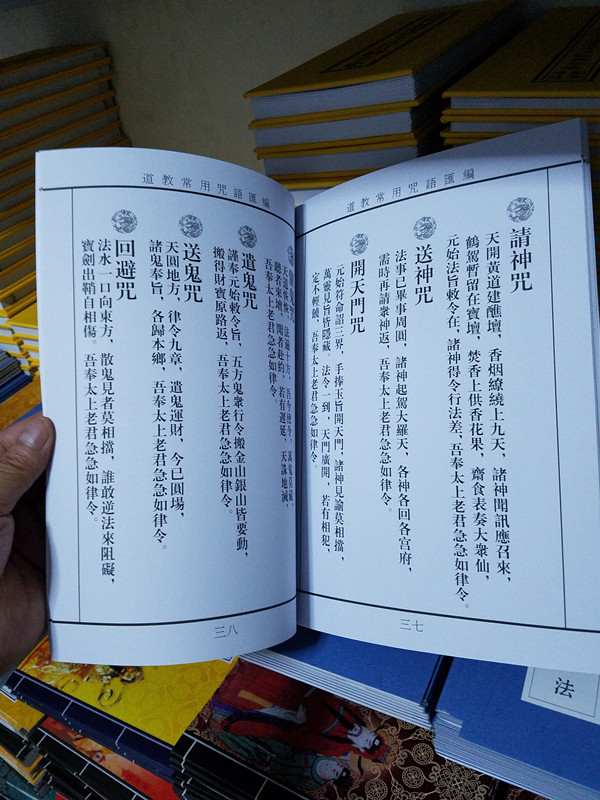 道教常用咒語匯編
請神咒
天開黃道建醮壇，香烟繚繞上九天，諸神聞訊應召來，
鶴駕暫留在寶壇，焚香上供香花果，齋食表奏大衆仙，
元始法旨敕令在，諸神得令行法差、吾奉太上老君急急如律令。
送神咒
法事已畢事周圓，諸神起駕大羅天，各神各回各宮府，
需時再請衆神返、吾奉太上老君急急如律令。
開天門咒
元始符命詔三界，手捧玉旨開天門，諸神見諭莫相擋，
萬靈見旨皆隱藏。法令一到，天門廣開，若有相犯，
定不輕饒，吾奉太上老君急急如律令。
三七
道教常用咒語匯編
鬼咒
法遍十方，吾今使令，萬鬼莫藏
壇，聞者赴約，若有遲延，天誅地滅，
吾奉太上老君急急如律令。
遣鬼咒
謹奉元始敕令旨，五方鬼衆行令搬金山銀山皆要動，
搬得財寶原路返，吾奉太上老君急急如律令。
送鬼咒
天圓地方，律令九章，遣鬼運財，今已圓場，
諸鬼奉旨，各歸本鄉，吾奉太上老君急急如律令。
回避咒
法水一口向東方，散鬼見者莫相擋，誰敢逆法來阻礙，
寶劍出鞘自相傷。吾奉太上老君急急如律令。
三八
法